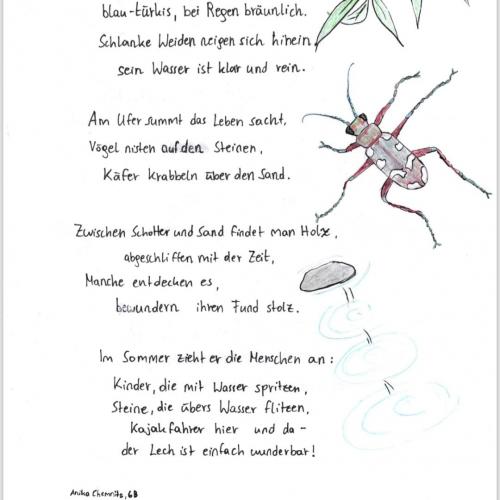 blau-türkis, bei Regen bräunlich.
Schlanke Weiden neigen sich hinein,
sein Wasser ist klar und rein.
Am Ufer summt das Leben sacht,
Vögel nisten auf den Steinen,
Käfer krabbeln über den Sand.
Zwischen Schotter und Sand findet man Holz,
abgeschliffen mit der Zeit,
Manche entdecken es,
bewundern ihren Fund stolz.
Im Sommer zieht er die Menschen an:
Kinder, die mit Wasser spritzen,
Steine, die übers Wasser flitzen,
Kajakfahrer hier und da -
der Lech ist einfach wunderbar!
Anika Chemnitz, 6B